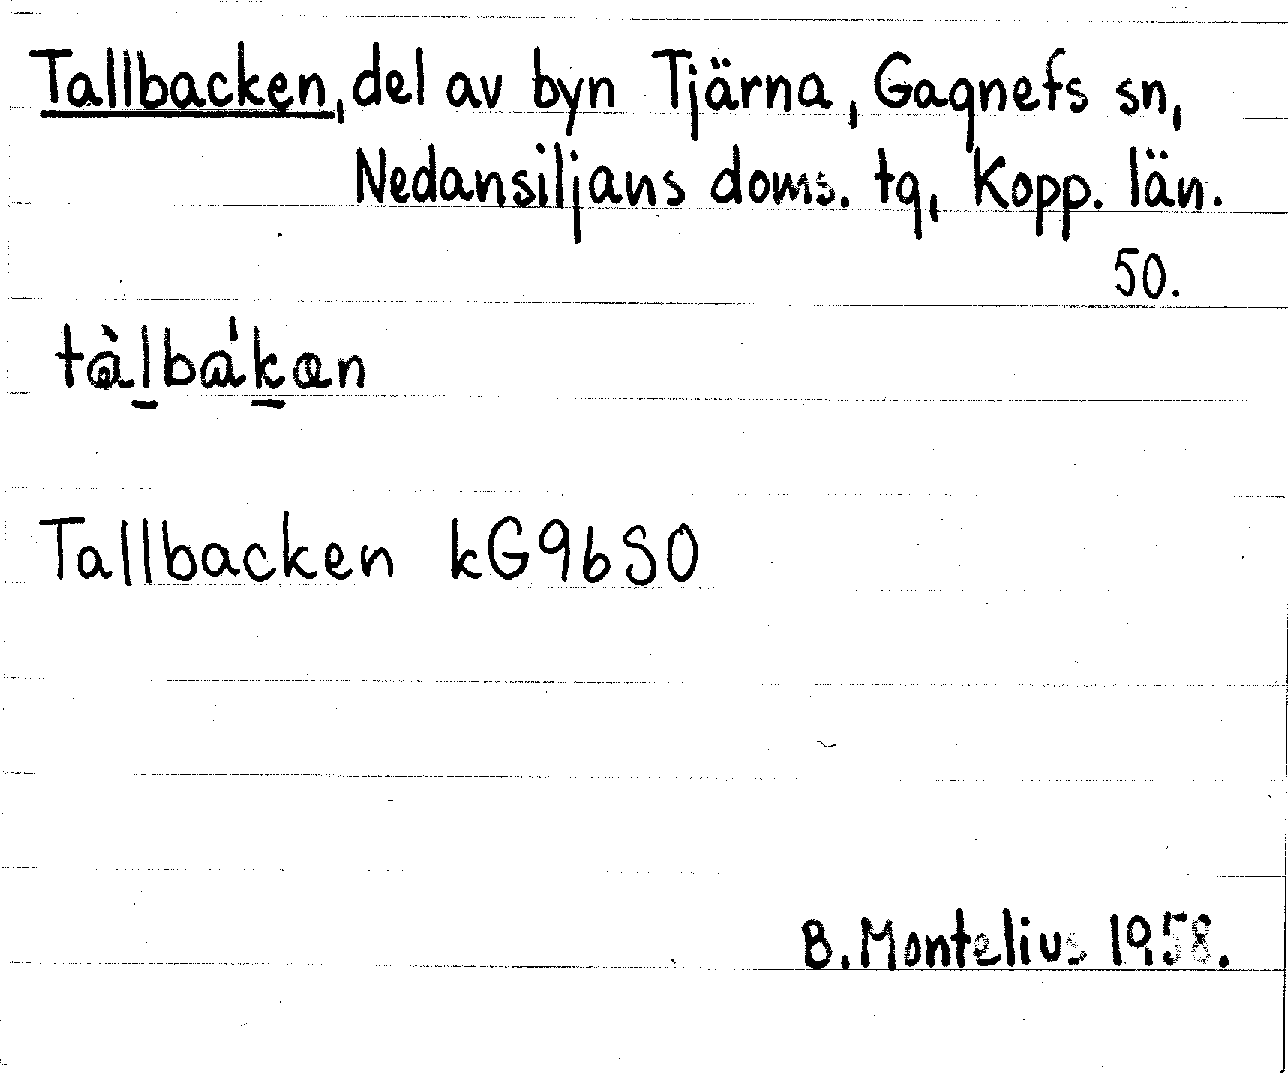 Tallbacken, del av byn Tjärna, Gagnefs sn,
Nedansiljans doms. tg, Kopp. län.
50.
tàl̠bák̠ən
Tallbacken kG9b50
B. Montelius 1958.